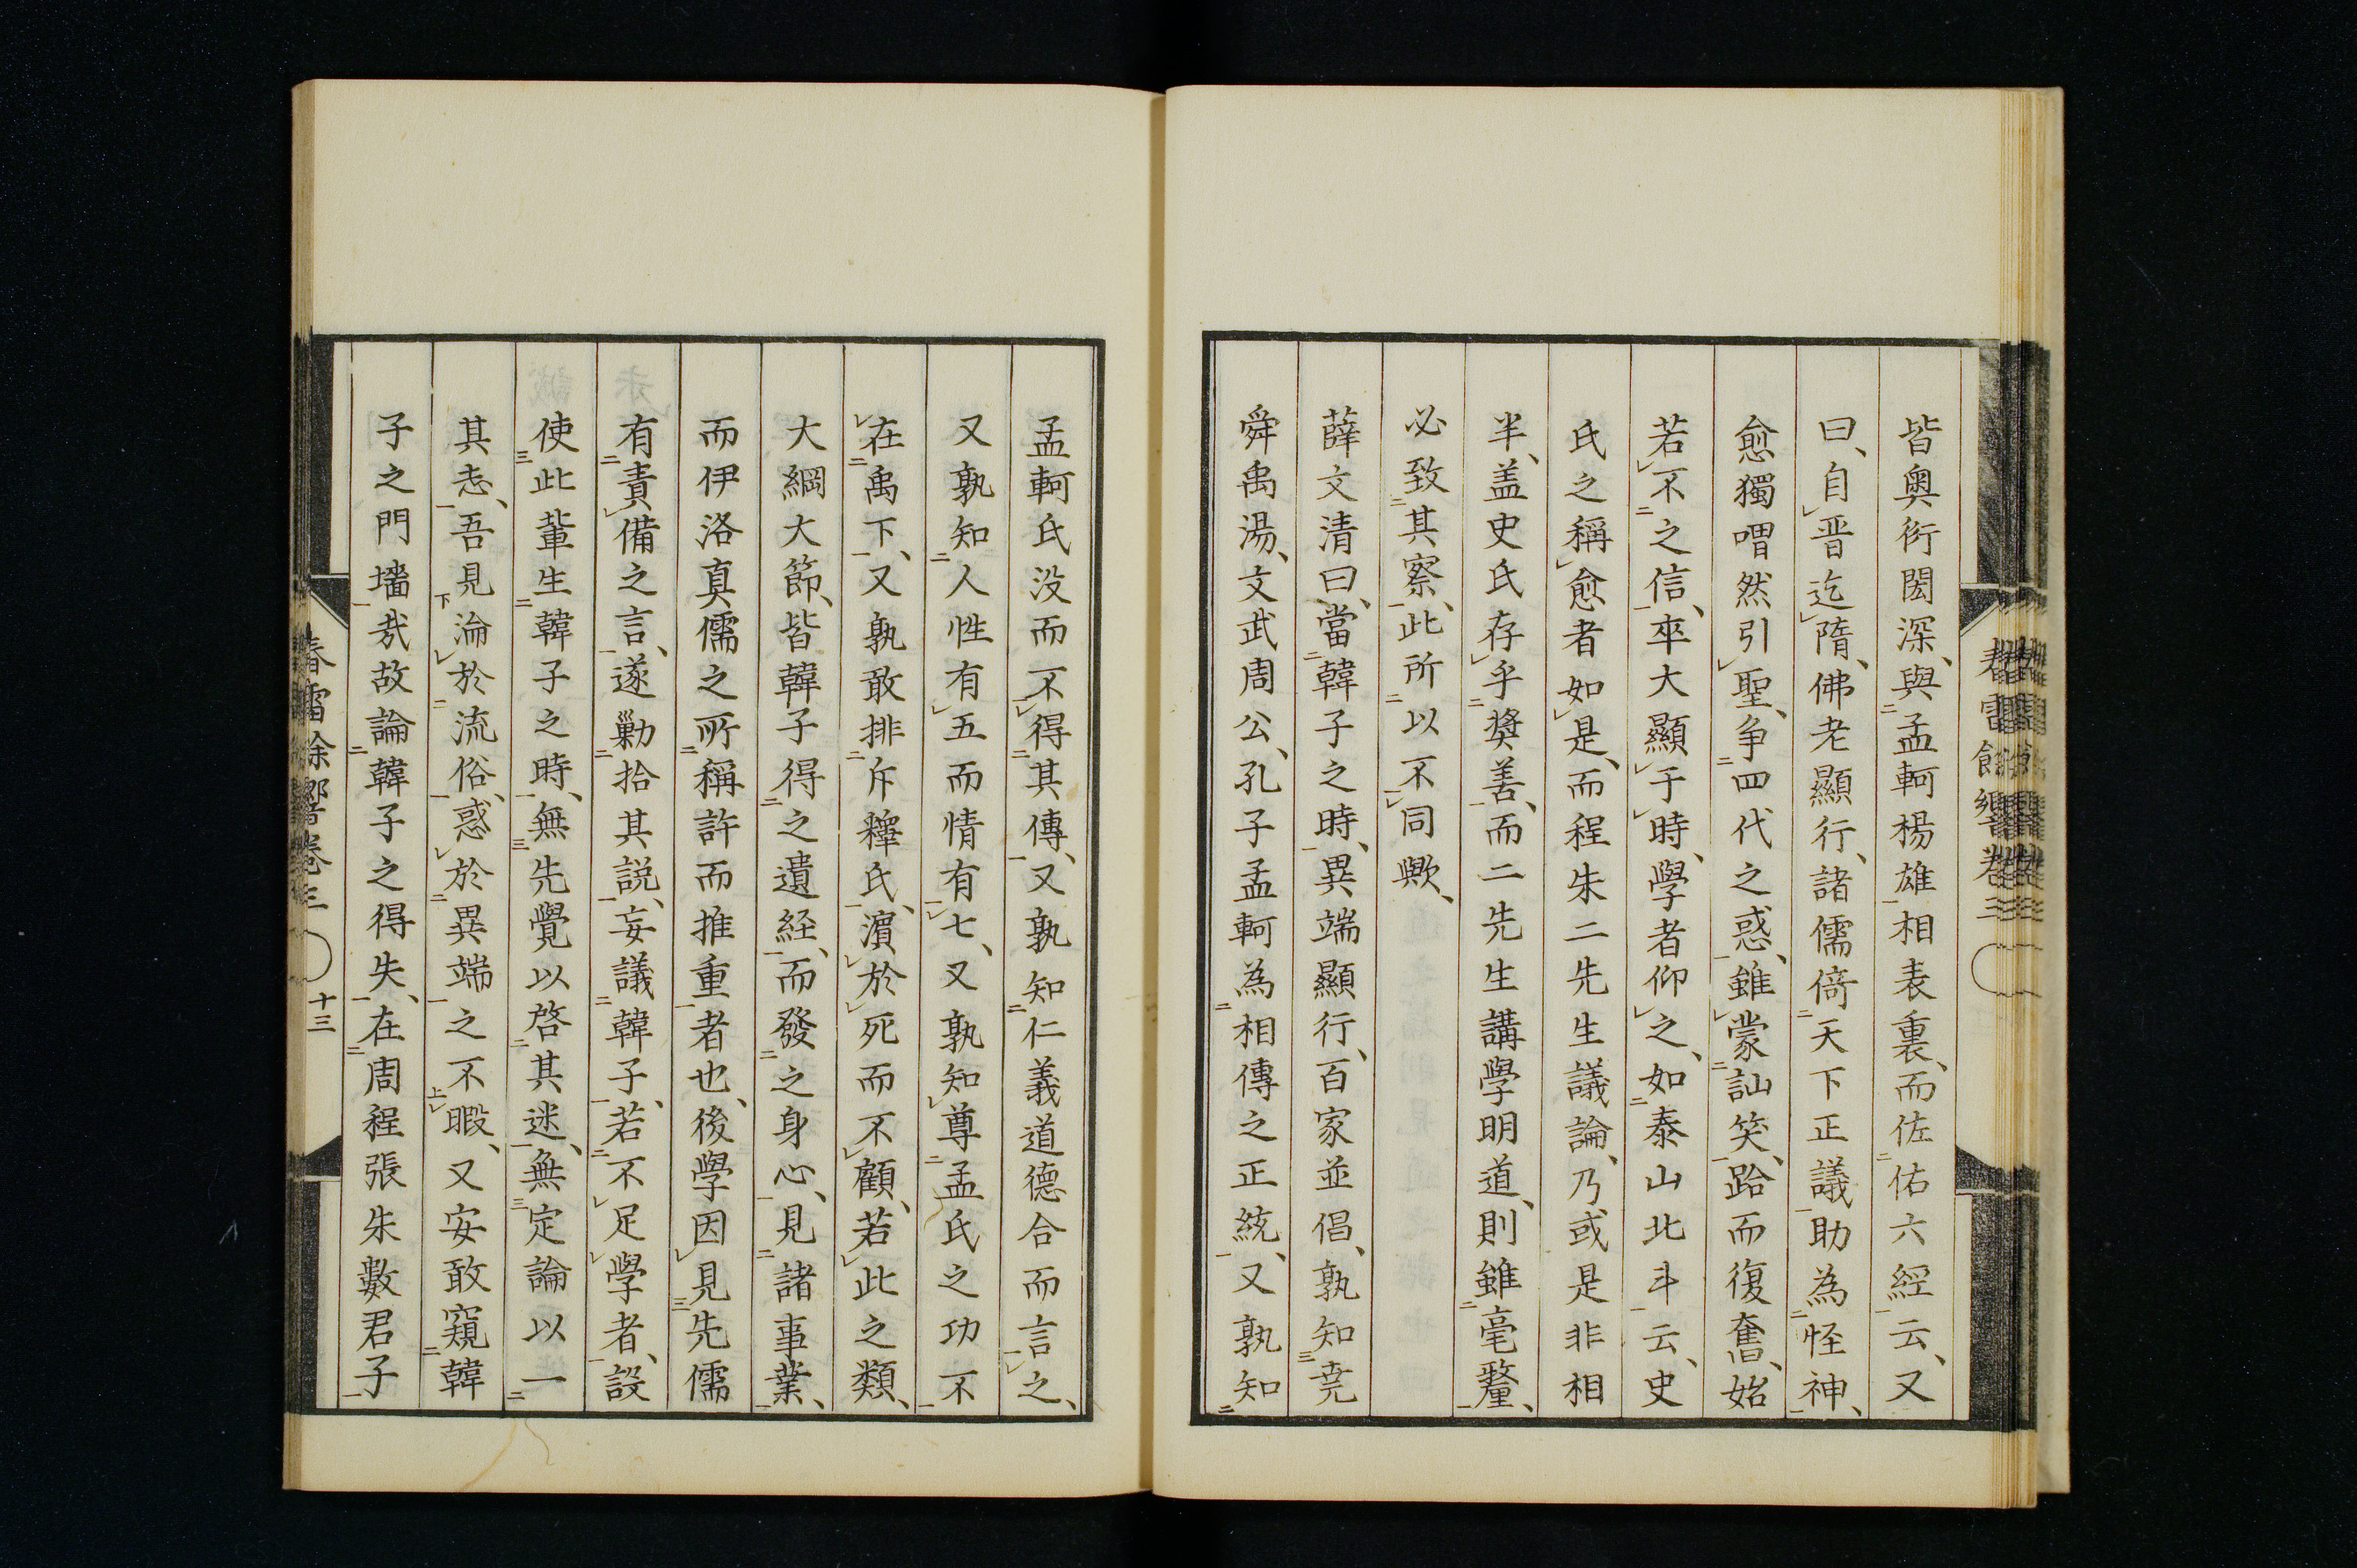 皆奧衍閎深、與孟軻楊雄相表裏、而佐佑六經云、又
曰、自晋迄隋、佛老顯行、諸儒倚天下正議助為恠神、
愈獨喟然引聖、争四代之惑、雖蒙訕笑、跲而復奮、始
若不之信、卒大顯于時、學者仰之、如泰山北斗云、史
氏之稱愈者如是、而程朱二先生議論、乃或是非相
半、盖史氏存乎奬善、而二先生講學明道、則雖毫釐、
必致其察、此所以不同歟、
薛文清曰、當韓子之時、異端顯行、百家並倡、孰知堯
舜禹湯、文武周公、孔子孟軻為相傳之正統、又孰知
孟軻氏没而不得其傳、又孰知仁義道德合而言之、
又孰知人性有五而情有七、又孰知尊孟氏之功不
在禹下、又孰敢排斥釋氏、濵於死而不顧、若此之類、
大綱大節、皆韓子得之遺経、而發之身心、見諸事業、
而伊洛真儒之所稱許而推重者也、後學因見先儒
有責備之言、遂勦拾其説、妄議韓子、若不足學者、設
使此輩生韓子之時、無先覺以啓其迷、無定論以一
其志、吾見淪於流俗、惑於異端之不暇、又安敢窺韓
子之門墻㦲故論韓子之得失、在周程張朱數君子
春雷餘響卷三
十三